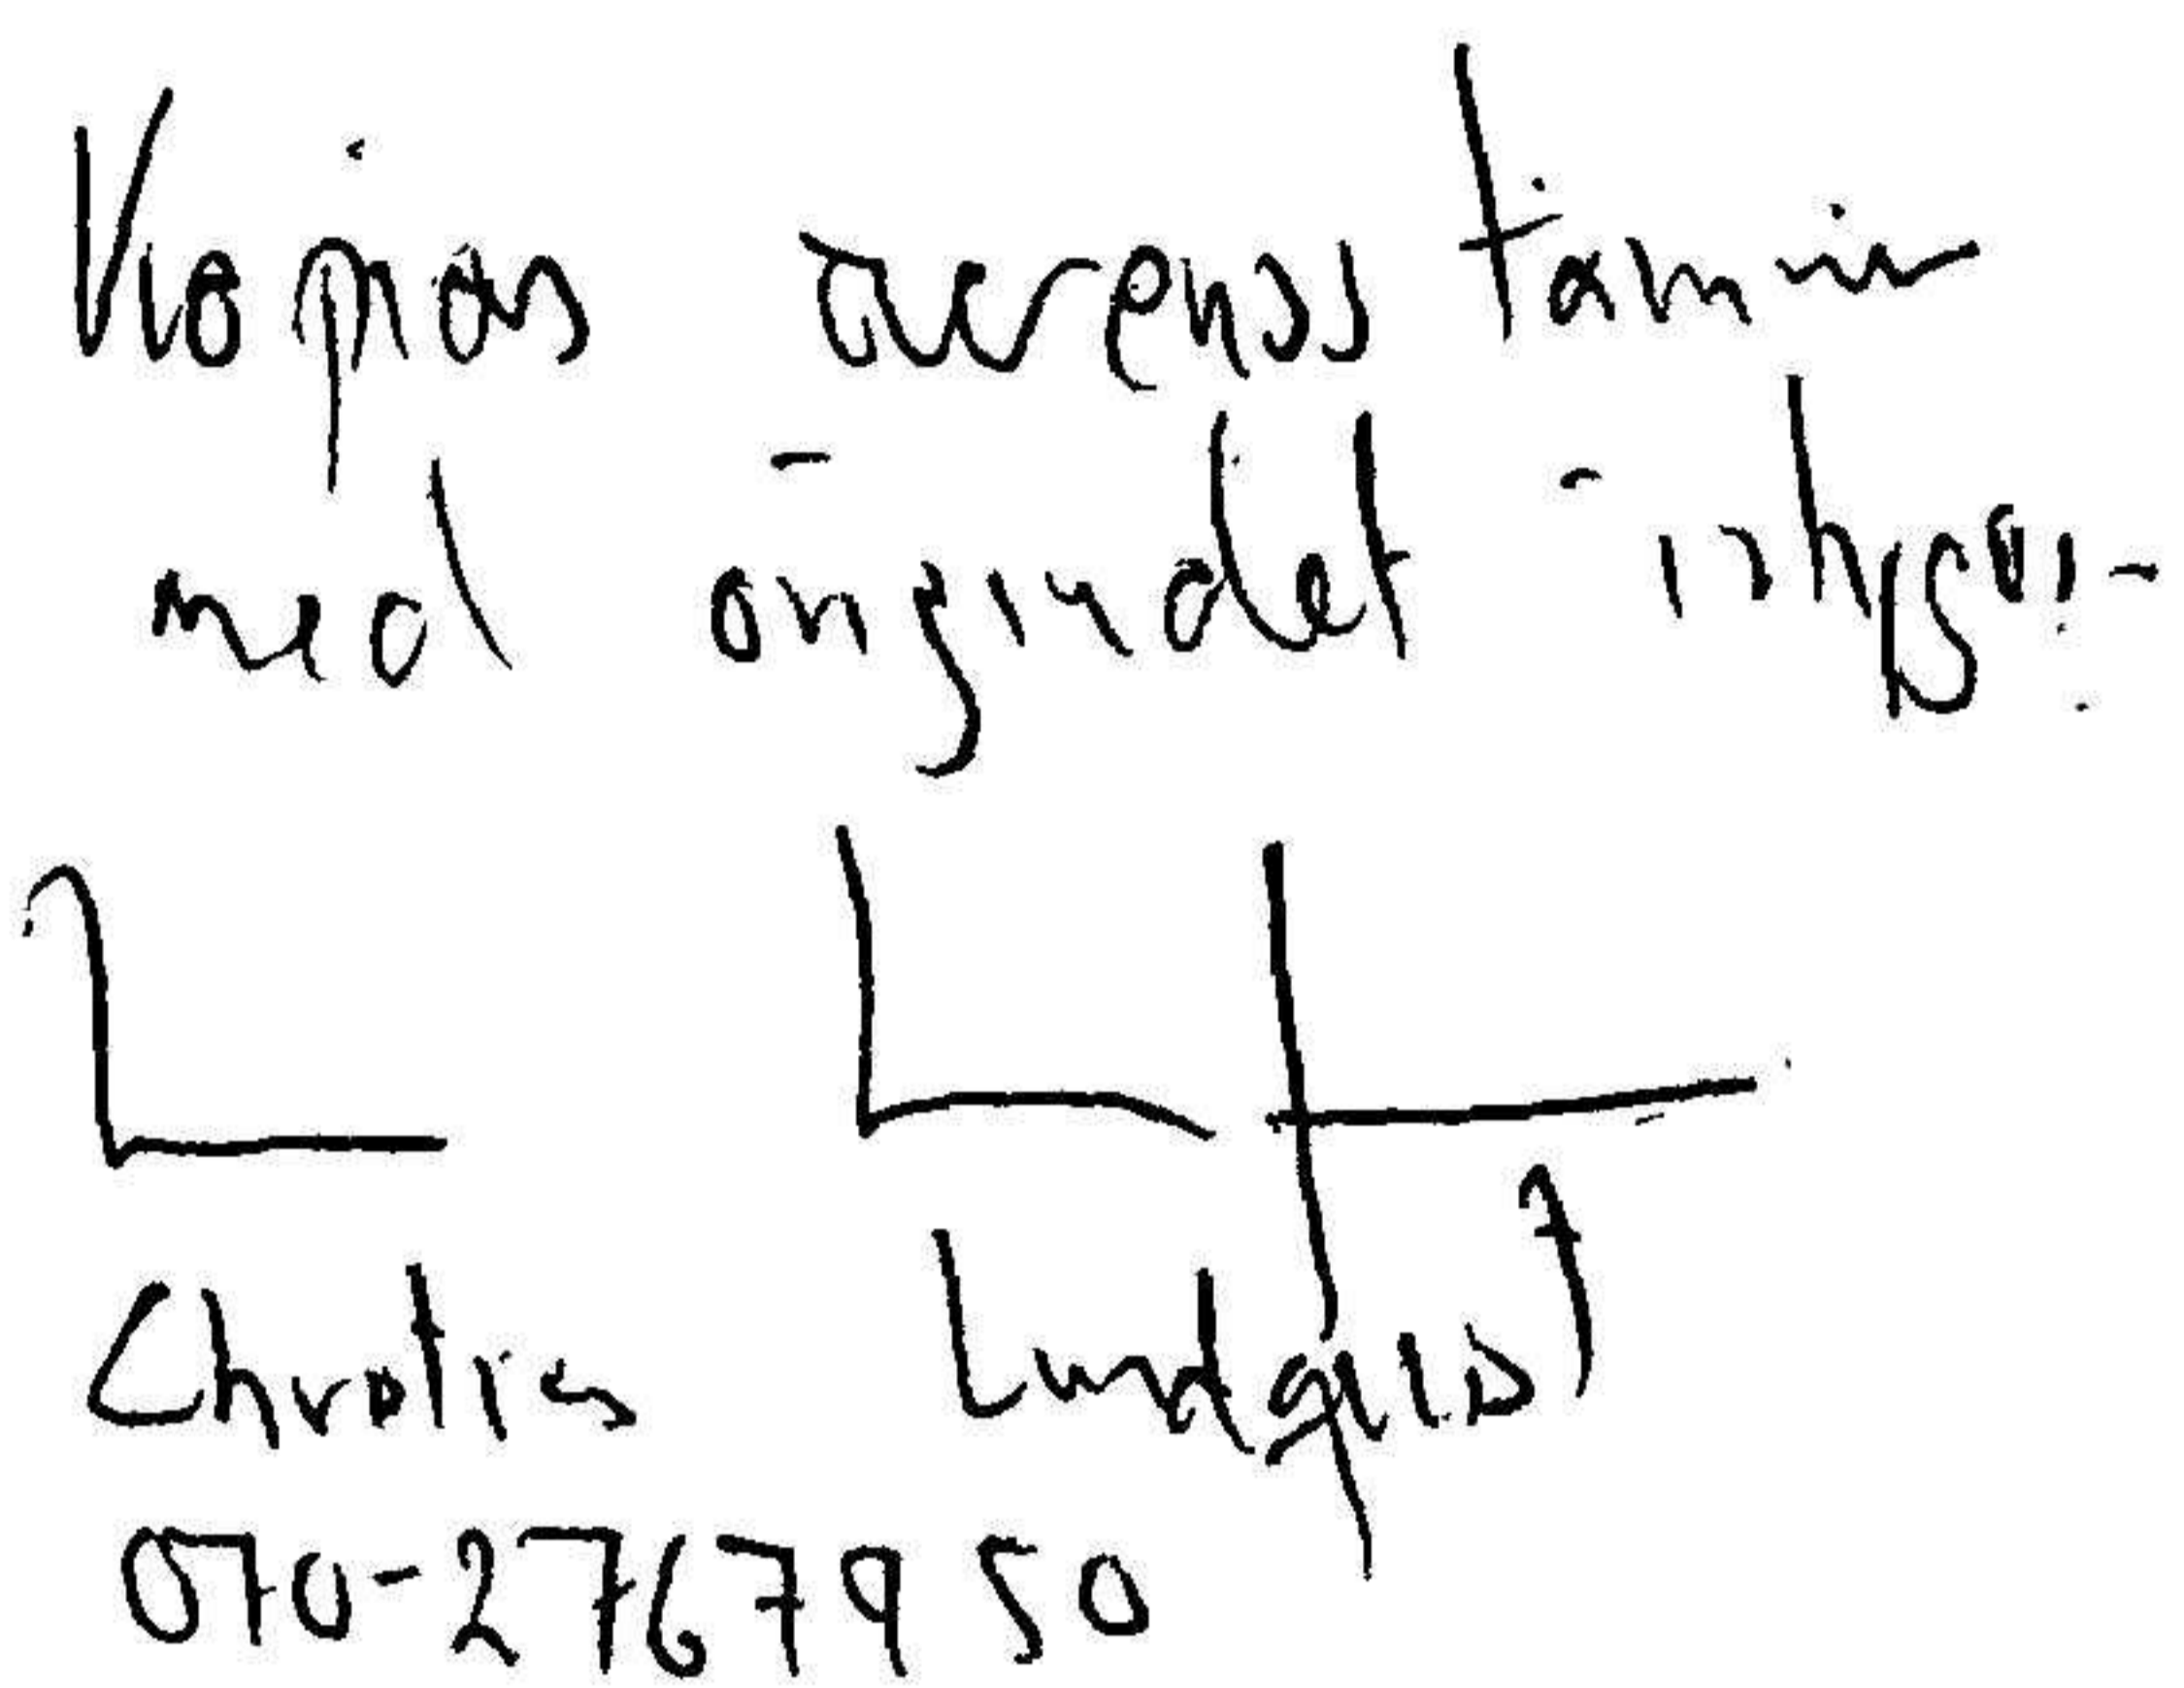 Kopians överensstämmer
med originalet intygas:-
Christies Lundquist
070-27679 50